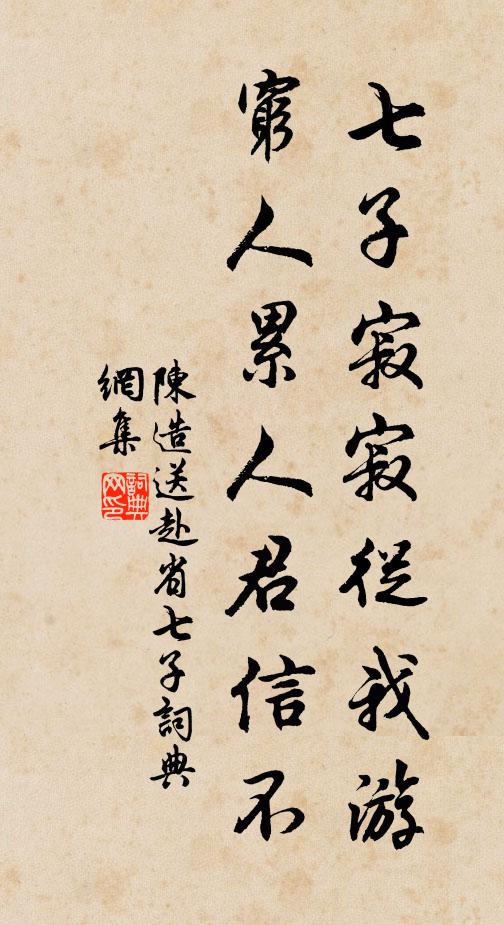 七子寂寂從我游
窮人累人君信不
陳造送赴省七子詞典
網集
詞典
网印